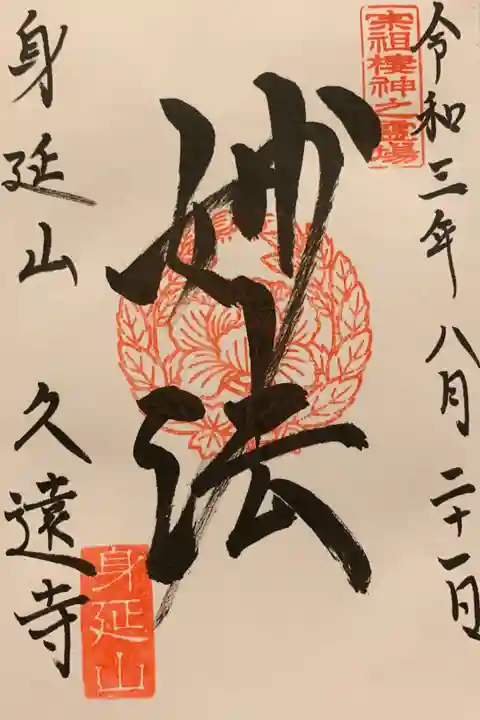 宗祖棲神之霊場
令和三年八月二十一日
妙法
身延山 久遠寺
身延山